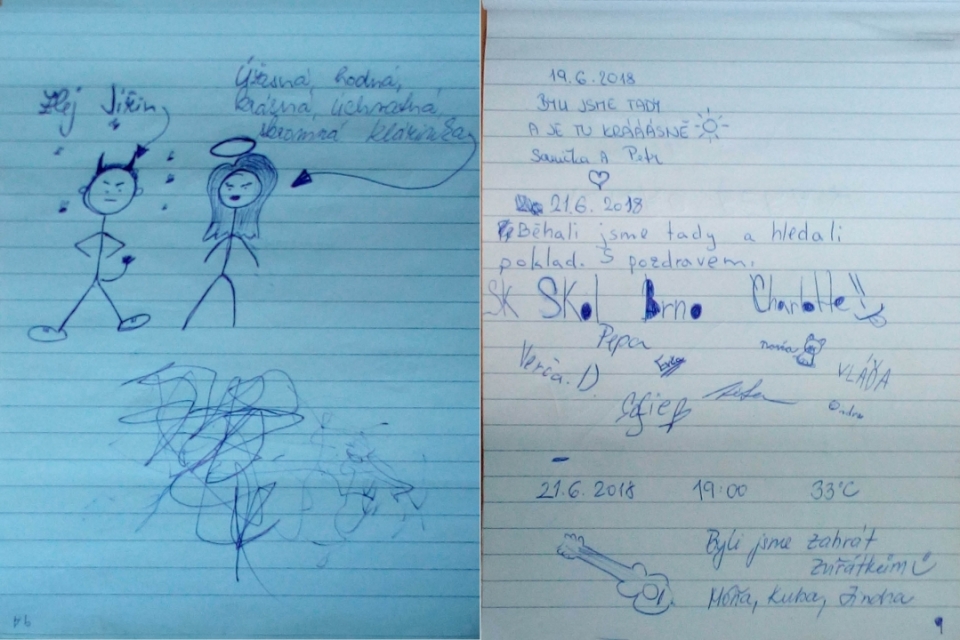 Zlej Jiřin
Úžasná, hodná,
krásná, úchvatná,
skromná Klárinka
94
19.6.2018
JSME TADY
A JE TU KRÁÁÁSNĚ
A Petr
21.6.2018
Běhali jsme tady a hledali
poklad. S pozdravem.
SK SKol Brno Charlotte!!
Pepa
Verča. D.
VLÁĎA
21.6.2018 19:00 33°C
Byli jsme zahrát
zvířátkům
Kuba, Jindra